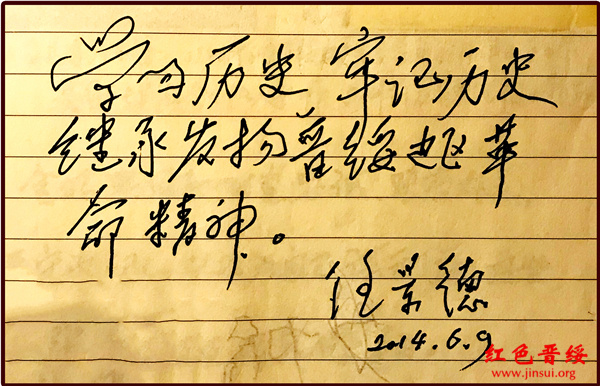 学习历史 牢记历史
继承发扬晋绥边区革
命精神。
任景德
2014.6.9
红色晋绥
www.jinsui.org